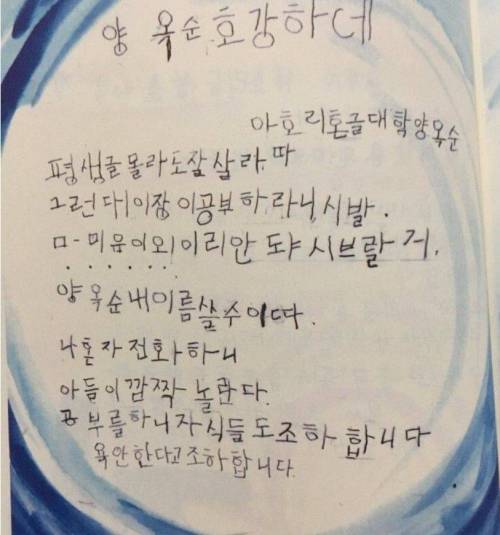 양 옥순 호강하데
아호리혼글대학양옥순
평생글몰라도잘살라따
그런대이장이공부하라니시발.
ㅁ-미음이왜이리안 도냐 시브랄거.
양옥순내이름쓸수이따.
나혼자전화하니
아들이깜짝놀란다.
공부를하니자식들도조하합니다
욕안한다고조하합니다.